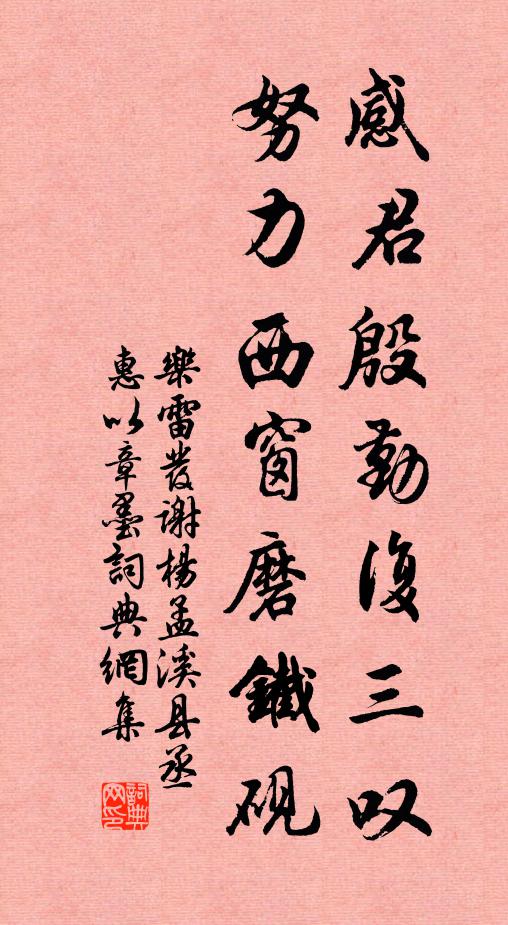 感君殷勤復三叹
努力西窗磨鐵硯
樂雷發謝楊孟溪县丞
惠以章墨詞典網集
詞典网印